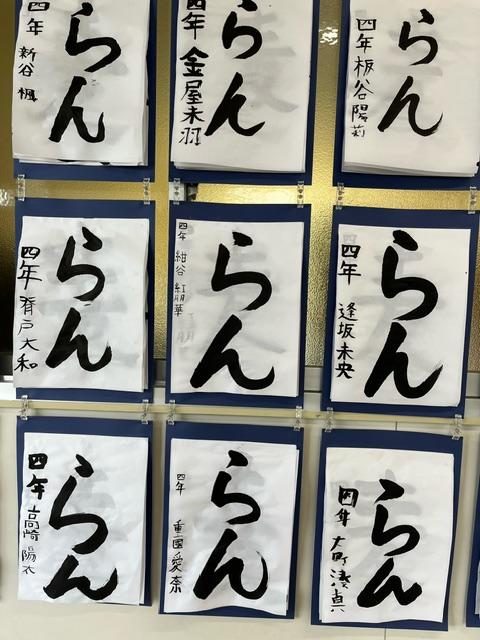 らん
四年 新谷 楓
らん
四年 金屋未羽
らん
四年 板谷陽莉
らん
四年 脊戸大和
らん
四年 紺谷紅朋華
らん
四年 逢坂未央
らん
四年 高崎陽太
らん
四年 重國愛奈
らん
四年 大町湊真